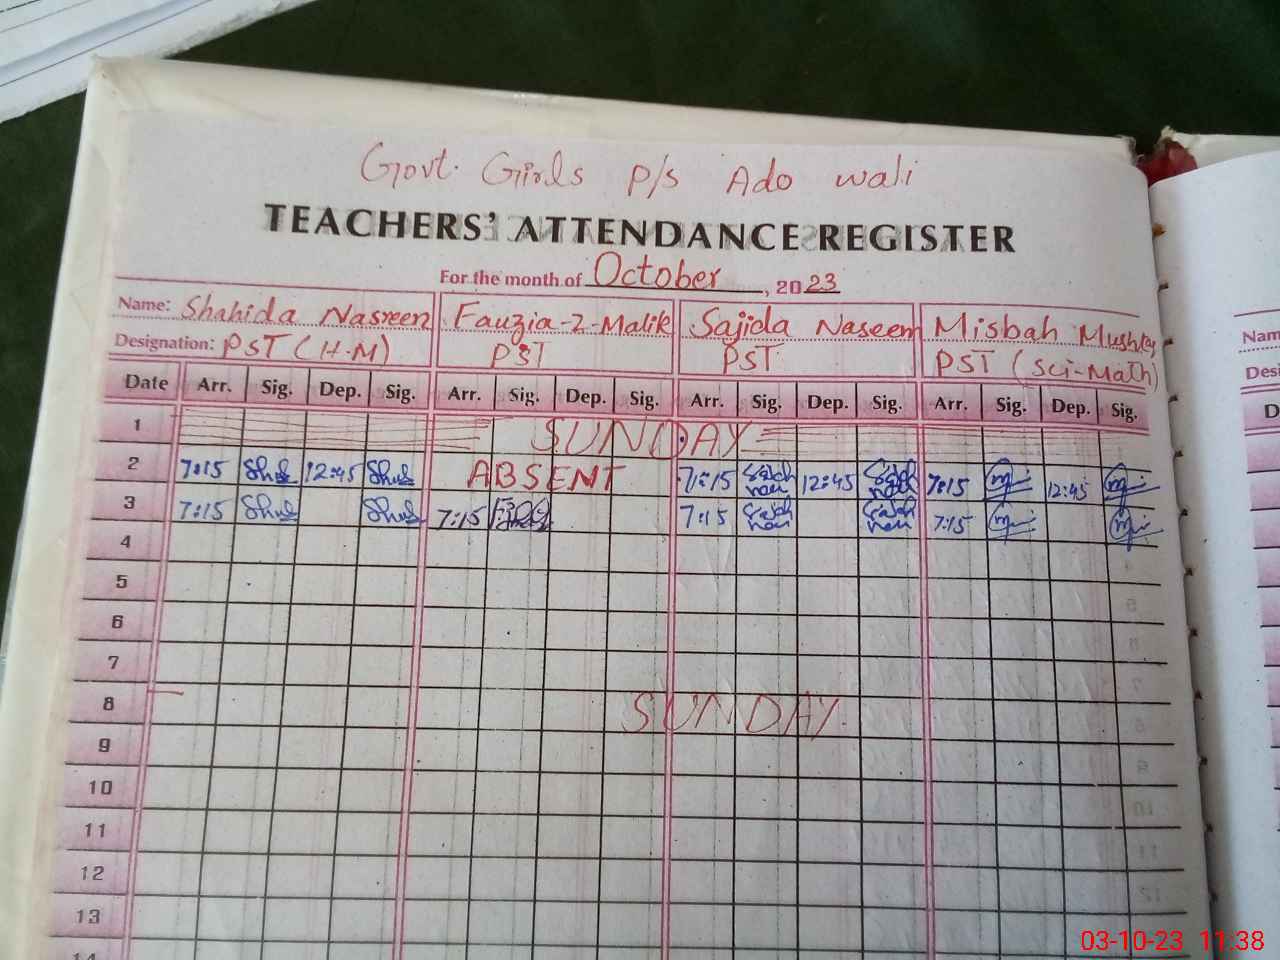 Govt. Girls P/S Ado wali
TEACHERS' ATTENDANCE REGISTER
For the month of October, 2023
Name: Shahida Nasreen Fauzia-Z-Malik Sajida Naseem Misbah
Designation: PST (H.M) PST PST PST (Sci-Math)
Date Arr. Sig. Dep. Sig. Arr. Sig. Dep. Sig. Arr. Sig. Dep. Sig. Arr. Sig. Dep. Sig.
1 SUNDAY
2 7:15 12:45 ABSENT 7:15 12:45 7:15 12:45
3 7:15 7:15 7:15 7:15
4
5
6
7
8 SUNDAY
9
10
11
12
13
14
03-10-23 11:38